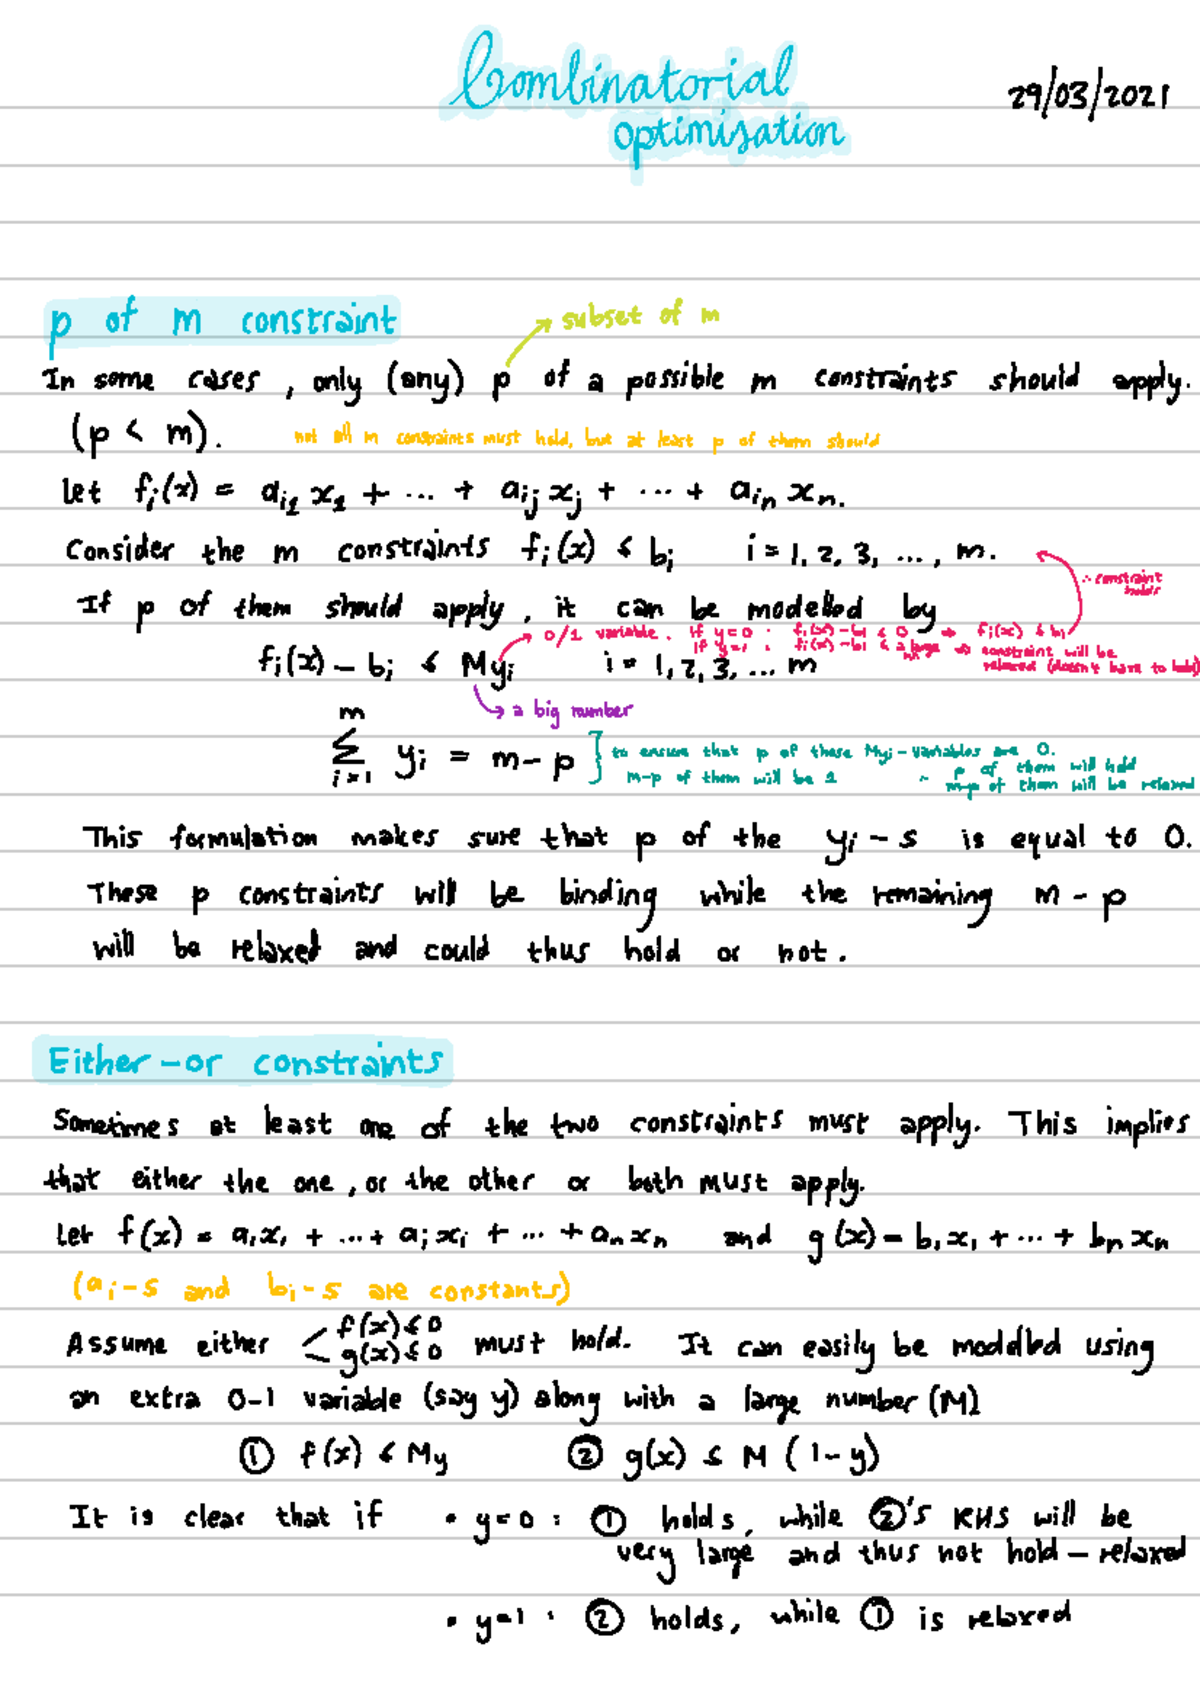 Combinatorial
optimisation
29/03/2021
p of m constraint
subset of m
In some cases, only (any) p of a possible m constraints should apply.
(p < m).
not all m constraints must hold, but at least p of them should
let fᵢ(x) = aᵢ₁ x₁ + ... + aᵢⱼ xⱼ + ... + aᵢₙ xₙ.
Consider the m constraints fᵢ(x) ≤ bᵢ i = 1, 2, 3, ..., m.
∴ constraint
holds
If p of them should apply, it can be modelled by
0/1 variable. if y=0 : fᵢ(x) - bᵢ ≤ 0 ⇒ fᵢ(x) ≤ bᵢ
if y=1 : fᵢ(x) - bᵢ ≤ a large constraint will be
relaxed (doesn't have to hold)
fᵢ(x) - bᵢ ≤ Myᵢ i = 1, 2, 3, ... m
a big number
m
∑ yᵢ = m - p
i=1
to ensure that p of these Myᵢ - variables are 0.
m-p of them will be 1
p of them will hold
m-p of them will be relaxed
This formulation makes sure that p of the yᵢ - s is equal to 0.
These p constraints will be binding while the remaining m - p
will be relaxed and could thus hold or not.
Either-or constraints
Sometimes at least one of the two constraints must apply. This implies
that either the one, or the other or both must apply.
Let f(x) = a₁x₁ + ... + aᵢxᵢ + ... + aₙxₙ and g(x) = b₁x₁ + ... + bₙxₙ
(aᵢ-s and bᵢ-s are constants)
Assume either f(x) ≤ 0
g(x) ≤ 0 must hold. It can easily be modelled using
an extra 0-1 variable (say y) along with a large number (M)
① f(x) ≤ My ② g(x) ≤ M (1-y)
It is clear that if • y=0 : ① holds, while ②'s RHS will be
very large and thus not hold - relaxed
• y=1 : ② holds, while ① is relaxed